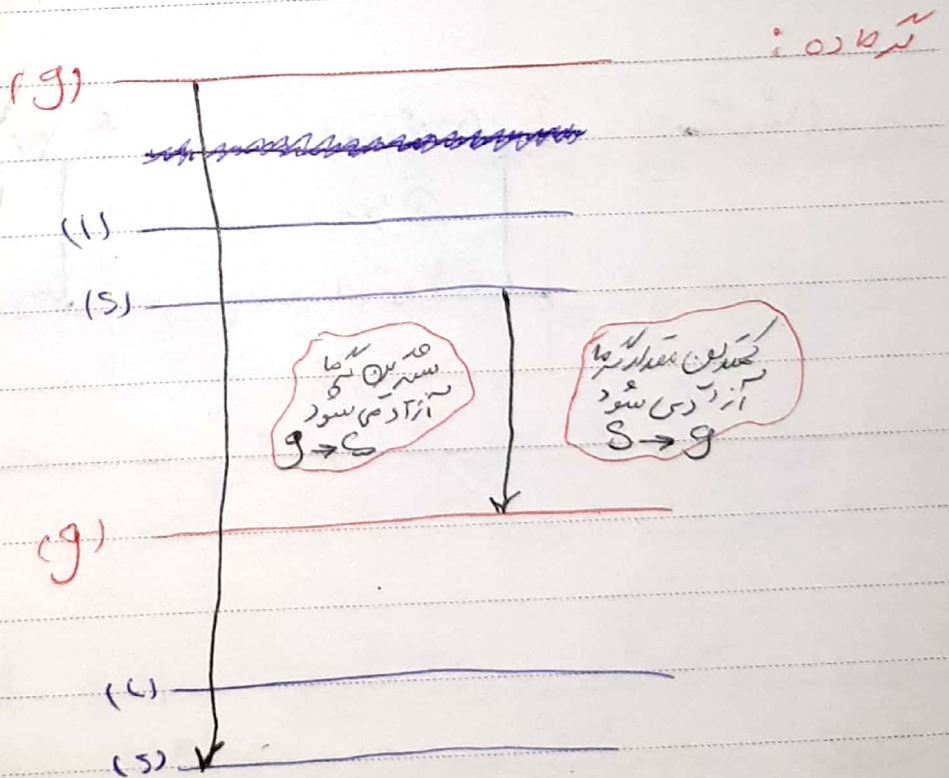 گرماده :
(g)
(l)
(s)
بیشترین گرما
آزاد می شود
g → s
کمترین مقدار گرما
آزاد می شود
s → g
(g)
(l)
(s)